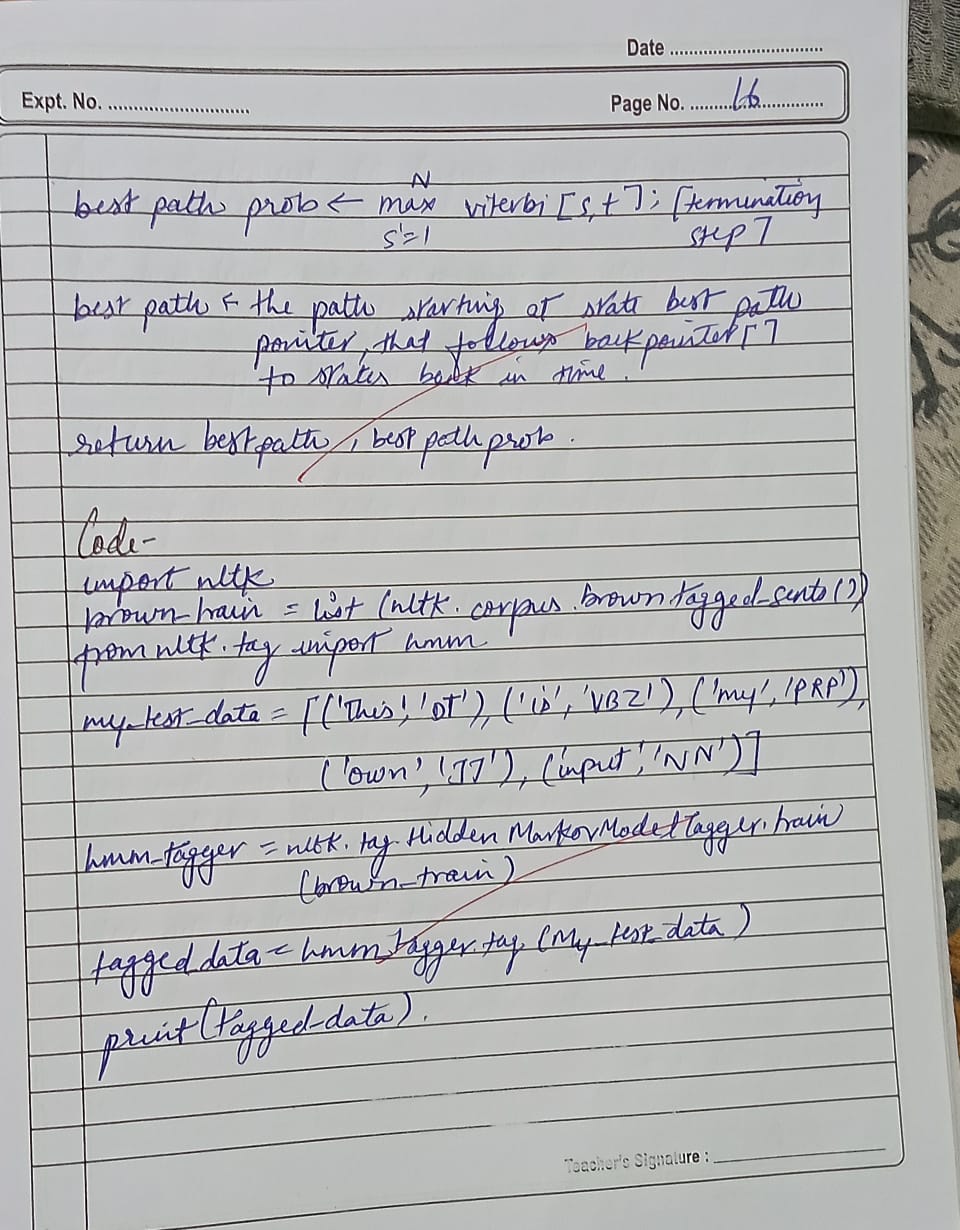 Date
Expt. No.
Page No. 16
N
best path prob ← max viterbi [s,t]; [termination
s'=1 step]
best path ← the path starting at state best path
pointer, that follows backpointer[]
to states back in time.
return bestpath, best path prob.
Code-
import nltk
brown_train = list (nltk. corpus .brown tagged_sents())
from nltk. tag import hmm
my_test_data = [('This', 'DT'), ('is', 'VBZ'), ('my', 'PRP'),
('own', 'JJ'), (input', 'NN')]
hmm_tagger = nltk. tag. Hidden MarkovModelTagger. train
(brown_train)
tagged_data = hmm_tagger. tag (My_test_data)
print(tagged_data).
Teacher's Signature :